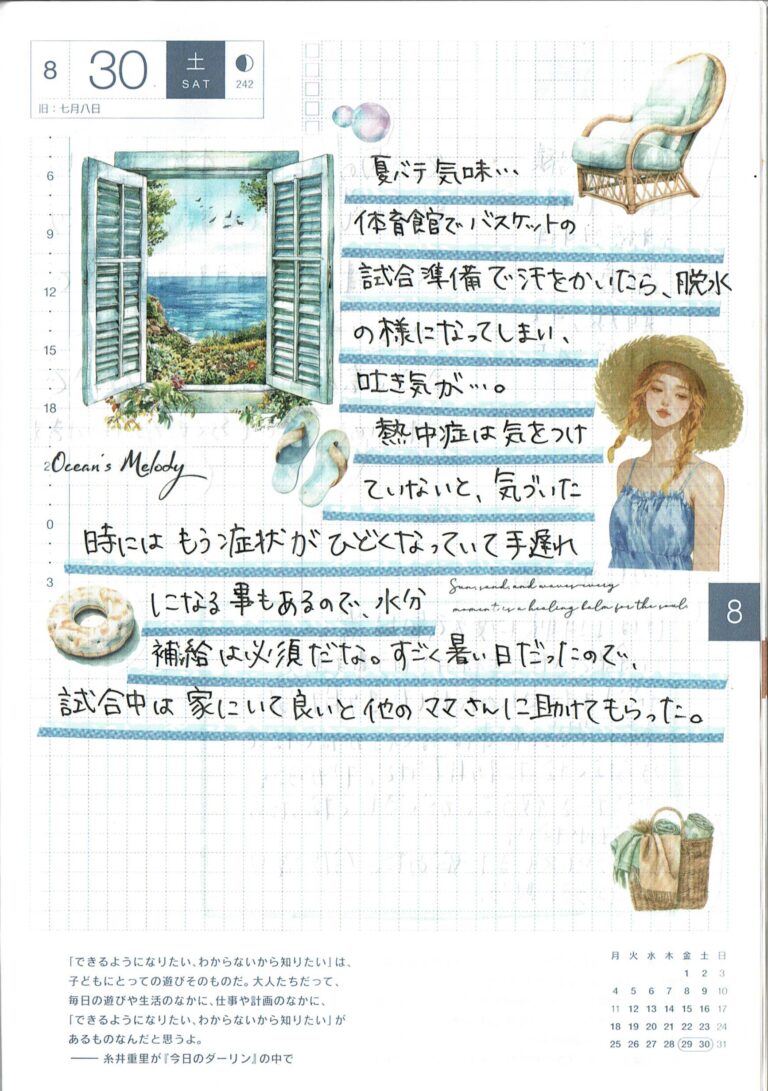 8 30 土 SAT 242
旧：七月八日
夏バテ気味…
体育館でバスケットの
試合準備で汗をかいたら、脱水
の様になってしまい、
吐き気が…。
熱中症は気をつけ
ていないと、気づいた
時にはもう症状がひどくなっていて手遅れ
になる事もあるので、水分
補給は必須だな。すごく暑い日だったので、
試合中は家にいて良いと他のママさんに助けてもらった。
6
9
12
15
18
Ocean's Melody
0
3
Sun, sand, and waves—every
moment is a healing balm for the soul.
8
「できるようになりたい、わからないから知りたい」は、
子どもにとっての遊びそのものだ。大人たちだって、
毎日の遊びや生活のなかに、仕事や計画のなかに、
「できるようになりたい、わからないから知りたい」が
あるものなんだと思うよ。
—— 糸井重里が『今日のダーリン』の中で
月 火 水 木 金 土 日
1 2 3
4 5 6 7 8 9 10
11 12 13 14 15 16 17
18 19 20 21 22 23 24
25 26 27 28 29 30 31